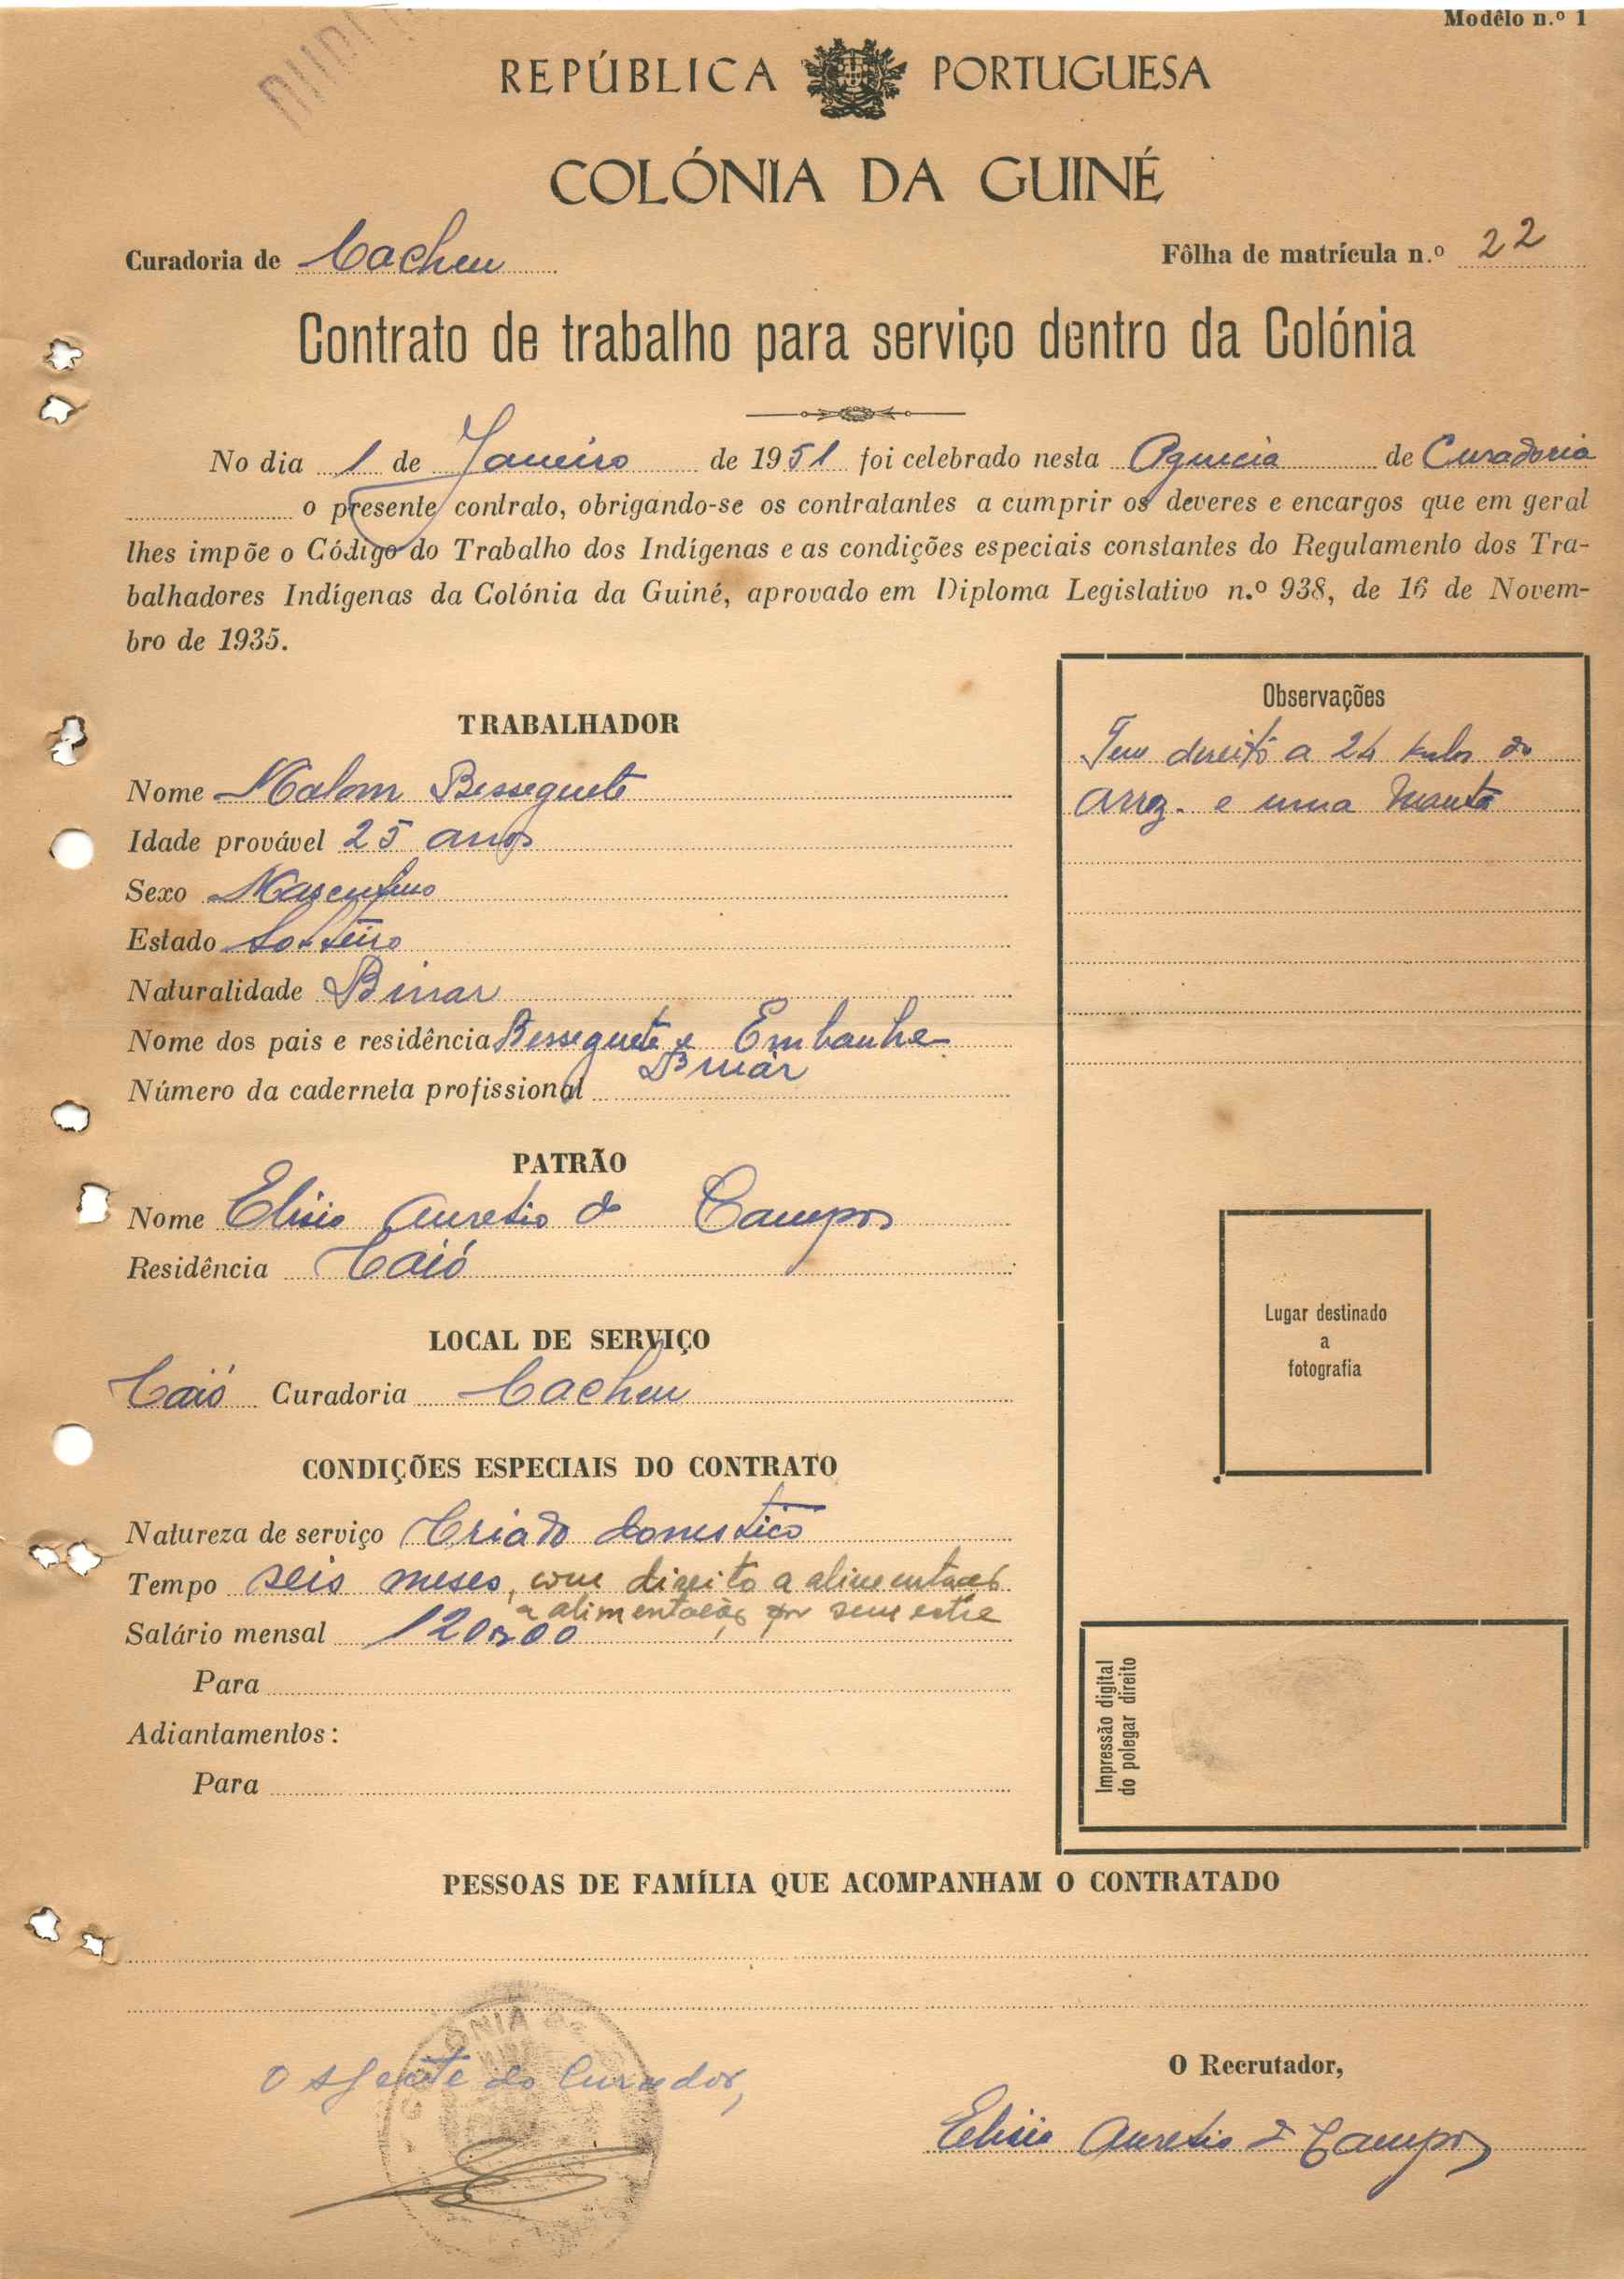 Modêlo n.º 1
REPÚBLICA PORTUGUESA
COLÓNIA DA GUINÉ
Curadoria de Cacheu Fôlha de matrícula n.º 22
Contrato de trabalho para serviço dentro da Colónia
No dia 1 de Janeiro de 1951 foi celebrado nesta Agencia de Curadoria
o presente contrato, obrigando-se os contratantes a cumprir os deveres e encargos que em geral
lhes impõe o Código do Trabalho dos Indígenas e as condições especiais constantes do Regulamento dos Tra-
balhadores Indígenas da Colónia da Guiné, aprovado em Diploma Legislativo n.º 938, de 16 de Novem-
bro de 1935.
Observações
Tem direito a 24 kilos de
arroz. e uma manta
TRABALHADOR
Nome Malam Besseguete
Idade provável 25 anos
Sexo Masculino
Estado Solteiro
Naturalidade Binar
Nome dos pais e residência Besseguete e Embanhe
Binar
Número da caderneta profissional
PATRÃO
Nome Elisio Aurelio de Campos
Residência Caió
LOCAL DE SERVIÇO
Caió Curadoria Cacheu
Lugar destinado
a
fotografia
CONDIÇÕES ESPECIAIS DO CONTRATO
Natureza de serviço Criado domestico
Tempo seis meses, com direito a
a alimentação por semestre
Salário mensal 120$00
Para
Adiantamentos:
Para
Impressão digital
do polegar direito
PESSOAS DE FAMÍLIA QUE ACOMPANHAM O CONTRATADO
O Agente do Curador,
O Recrutador,
Elisio Aurelio de Campos